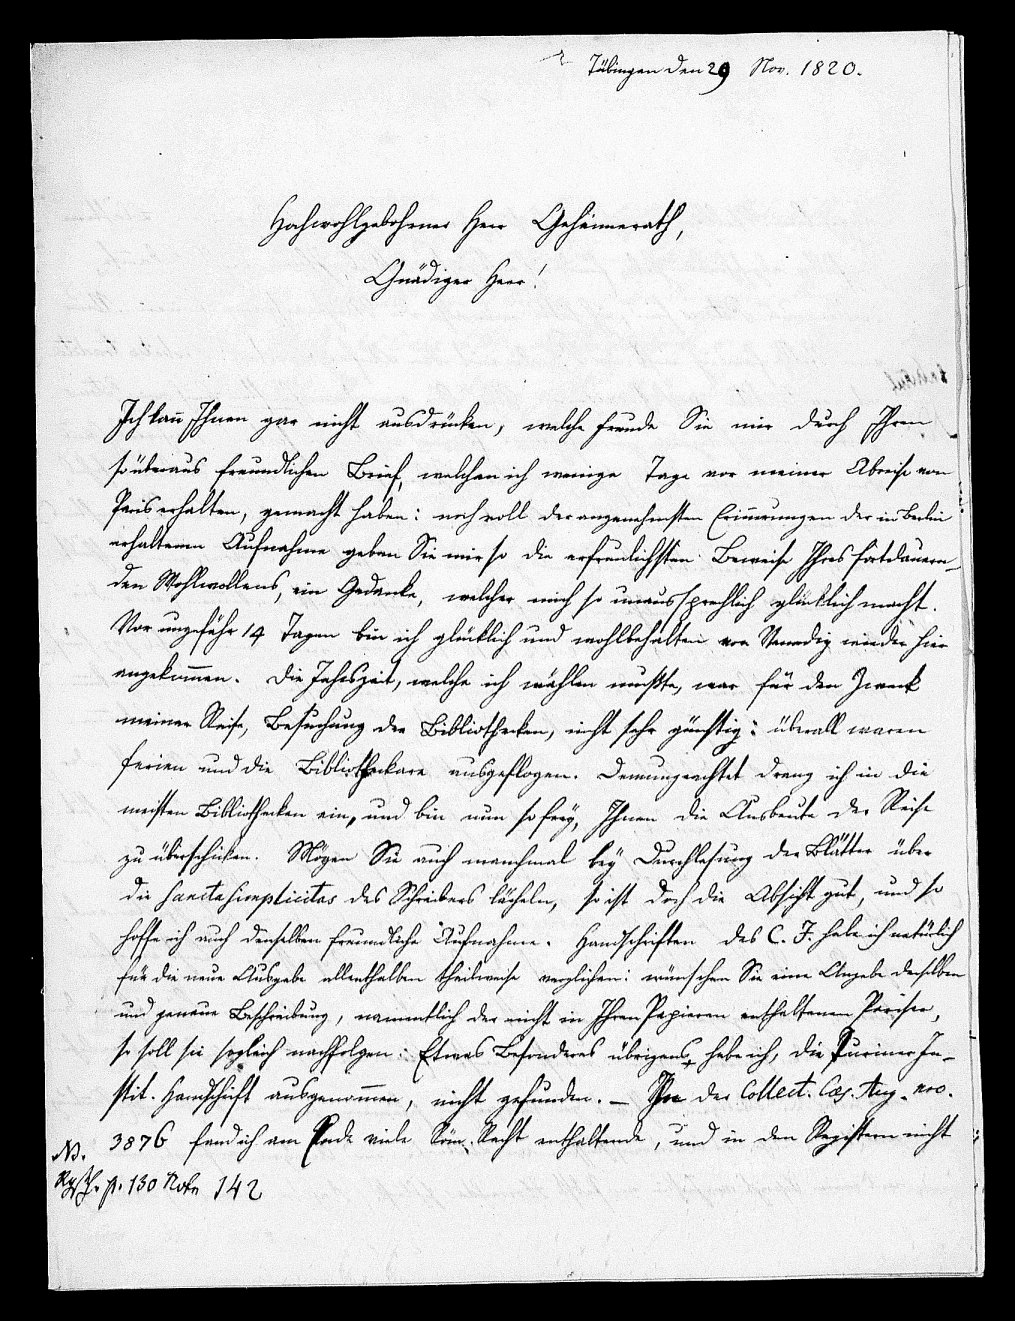 Tübingen den 29 Nov. 1820.
Hochwohlgebohrner Herr Geheimerath,
Gnädiger Herr!
Ich kañ Ihnen gar nicht ausdrücken, welche Freude Sie mir durch Ihren
so überaus freundlichen Brief, welchen ich wenige Tage vor meiner Abreise von
Paris erhalten, gemacht haben: noch voll der angenehmsten Eriñerungen der in Berlin
erhaltenen Aufnahme geben Sie mir so die erfreulichsten Beweise Ihres fortdauern-
den Wohlwollens, ein Gedanke, welcher mich so unaussprechlich glücklich macht.
Vor ungefähr 14 Tagen bin ich glücklich und wohlbehalten von Venedig wieder hier
angekom̄en. Die Jahrszeit, welche ich wählen mußte, war für den Zweck
meiner Reise, Besuchung der Bibliotheken, nicht sehr günstig: überall waren
Ferien und die Bibliothekare ausgeflogen. Demungeachtet drang ich in die
meisten Bibliotheken ein, und bin nun so frey, Ihnen die Ausbeute der Reise
zu überschicken. Mögen Sie auch manchmal bey Durchlesung der Blätter über
die sancta simplicitas des Schreibers lächeln, so ist doch die Absicht gut, und so
hoffe ich auch denselben freundliche Aufnahme. Handschriften des C. J. habe ich natürlich
für die neue Ausgabe allenthalben theilweise verglichen: wünschen Sie eine Angabe derselben
und genaue Beschreibung, namentlich der nicht in Ihren Papieren enthaltenen Pariser,
so soll sie sogleich nachfolgen: Etwas Besonderes übrigens habe ich, die Turiner In-
stit. Handschrift ausgenom̄en, nicht gefunden. – In der Collect. Can. Aug. no.
3876 fand ich am Ende viele Röm. Recht enthaltende, und in den Registern nicht
N.
p. 130 Note 142